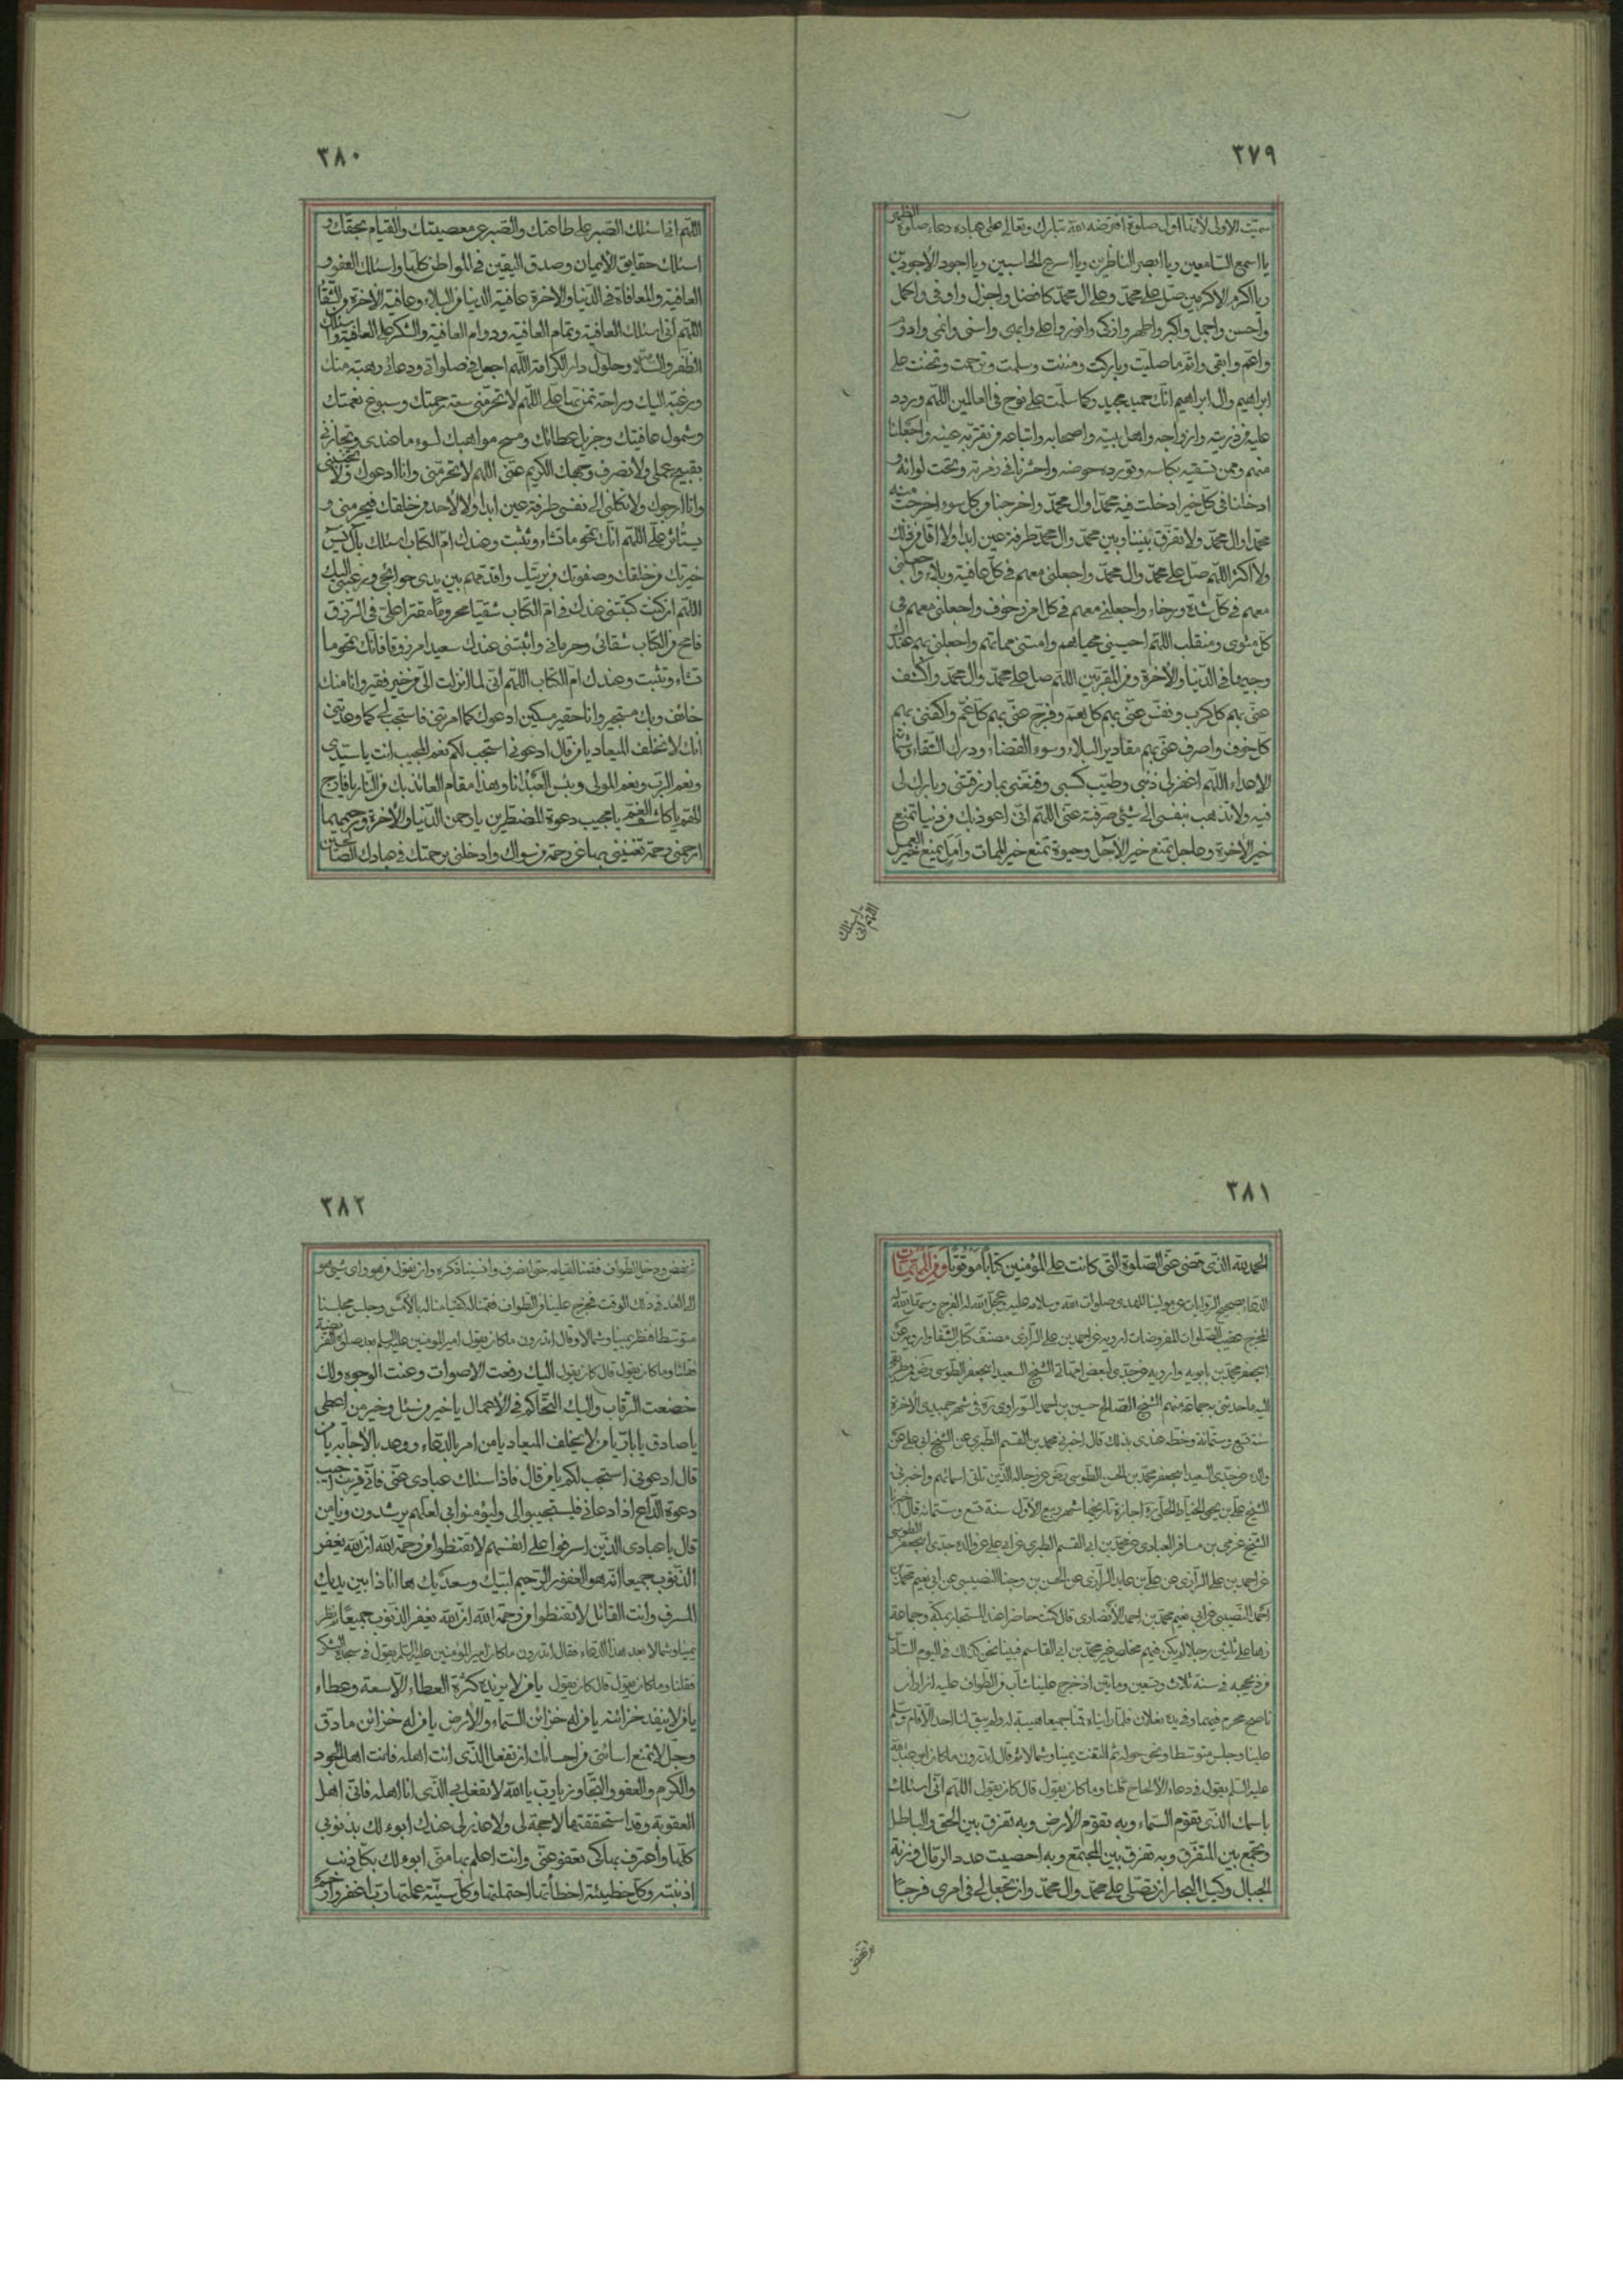 ٣٧٩
سميت الاولى لأنها اول صلوة افترضه الله تبارك وتعالى على عباده دعاء صلوة الظهر
يا اسمع السامعين ويا ابصر الناظرين ويا اسرع الحاسبين ويا اجود الأجودين
ويا اكرم الاكرمين صل على محمد وعلى ال محمد كافضل واجزل واوفى واكمل
واحسن واجمل واكبر واطهر وازكى وانور واعلى وابهى واسنى وانمى وادوم
واعم وابقى واتم ماصليت وباركت ومننت وسلمت وترحمت وتحننت على
ابراهيم وال ابراهيم انك حميد مجيد وكما سلمت على نوح فى العالمين اللهم وردد
عليه من ذريته وازواجه واهل بيته واصحابه واتباعه من تقر به عينه واجعلنا
منهم وممن تسقيه بكاسه وتورده حوضه واحشرنا فى زمرته وتحت لوائه و
ادخلنا فى كل خير ادخلت فيه محمدا وال محمد واخرجنا من كل سوء اخرجت منه
محمدا وال محمد ولا تفرق بيننا وبين محمد وال محمد طرفة عين ابدا ولا اقل من ذلك
ولا اكثر اللهم صل على محمد وال محمد واجعلنى معهم فى كل عافية وبلاء واجعلنى
معهم فى كل شدة ورخاء واجعلنى معهم فى كل امن وخوف واجعلنى معهم فى
كل مثوى ومنقلب اللهم احيينى محياهم وامتنى مماتهم واجعلنى بهم عندك
وجيها فى الدنيا والأخرة ومن المقربين اللهم صل على محمد وال محمد واكشف
عنى بهم كل كرب ونفس عنى بهم كل هم وفرج عنى بهم كل غم واكفنى بهم
كل خوف واصرف عنى بهم مقادير البلاء وسوء القضاء ودرك الشقاء وشماتة
الاعداء اللهم اغفر لى ذنبى وطيب كسبى وقنعنى بما رزقتنى وبارك لى
فيه ولا تذهب بنفسى الى شيئ صرفته عنى اللهم انى اعوذ بك من دنيا تمنع
خير الأخرة وعاجل يمنع خير الأجل وحيوة تمنع خير الممات وامل يمنع خير العمل
اللهم انى اسئلك
٣٨٠
اللهم انى اسئلك الصبر على طاعتك والصبر عن معصيتك والقيام بحقك و
اسئلك حقايق الأيمان وصدق اليقين فى المواطن كلها واسئلك العفو و
العافية والمعافاة فى الدنيا والأخرة عافية الدنيا من البلاء وعافية الأخرة من الشقاء
اللهم انى اسئلك العافية وتمام العافية ودوام العافية والشكر على العافية واسئلك
الظفر والسلامة وحلول دار الكرامة اللهم اجعل فى صلواتى ودعائى رهبة منك
ورغبة اليك وراحة تمن بها على اللهم لا تحرمنى سعة رحمتك وسبوغ نعمتك
وشمول عافيتك وجزيل عطائك ومنح مواهبك لسوء ما عندى ولا تجازنى
بقبيح عملى ولا تصرف وجهك الكريم عنى اللهم لا تحرمنى وانا ادعوك ولا تخيبنى
وانا ارجوك ولا تكلنى الى نفسى طرفة عين ابدا ولا الى احد من خلقك فيحرمنى و
يستأثر على اللهم انك تمحو ما تشاء وتثبت وعندك ام الكتاب اسئلك بآل يس
خيرتك من خلقك وصفوتك من بريتك واقدمهم بين يدى حوائجى ورغبتى اليك
اللهم ان كنت كتبتنى عندك فى ام الكتاب شقيا محروما مقترا على فى الرزق
فامح من الكتاب شقائى وحرمانى واثبتنى عندك سعيدا مرزوقا فانك تمحو ما
تشاء وتثبت وعندك ام الكتاب اللهم انى لما انزلت الى من خير فقير وانا منك
خائف وبك مستجير وانا حقير مسكين ادعوك كما امرتنى فاستجب لى كما وعدتنى
انك لا تخلف الميعاد يا من قال ادعونى استجب لكم نعم المجيب انت يا سيدى
ونعم الرب ونعم المولى وبئس العبد انا وهذا مقام العائذ بك من النار يا فارج
الهم يا كاشف الغم يا مجيب دعوة المضطرين يا رحمن الدنيا والأخرة ورحيمهما
ارحمنى رحمة تغنينى بها عن رحمة من سواك وادخلنى برحمتك فى عبادك الصالحين
٣٨١
الحمد لله الذى قضى عنى الصلوة التى كانت على المؤمنين كتابا موقوتا ومن المهمات
الدعاء بصحيح الروايات عن مولينا المهدى صلوات الله وسلامه عليه عجل الله له الفرج
المخرج عقيب الصلوات المفروضات ارويه عن احمد بن على الرازى مصنف كتاب الشفا وارويه عن
ابيجعفر محمد بن بابويه وارويه عن جدى لبعض امهاتى الشيخ السعيد ابيجعفر الطوسى
اليه ما حدثنى به جماعة منهم الشيخ الصالح حسين بن احمد السوراوى ره فى شهر جميدى الأخرة
سنة تسع وستمائة وخطه عندى بذلك قال اخبرنى محمد بن القسم الطبرى عن الشيخ ابى على عن
والده عن جدى السعيد ابيجعفر محمد بن الحسن الطوسى
الشيخ على بن يحيى الخياط الحلى ره اجازة تاريخها شهر ربيع الأول سنة تسع وستمائة قال اخبرنا
الشيخ عربى بن مسافر العبادى عن محمد بن ابى القسم الطبرى عن ابى على عن والده جدى ابيجعفر الطوسى
عن احمد بن على الرازى عن على بن عايد الرازى عن الحسن بن وجنا النصيبى عن ابى نعيم محمد بن
احمد قال كنت حاضرا عند المستجار بمكة وجماعة
زهاء على ثلثين رجلا لم يكن فيهم مخلص غير محمد بن ابى القاسم فبينا نحن كذلك فى اليوم السادس
من ذيحجة فى سنة ثلاث وتسعين ومائتين اذ خرج علينا شاب من الطواف عليه ازاران
ناصح محرم فيهما وفى يده نعلان فلما رايناه قمنا جميعا هيبة له ولم يبق لنا احد الا قام وسلم
علينا وجلس متوسطا ونحن حوله ثم التفت يمينا وشمالا ثم قال اتدرون ما كان ابو عبد الله
عليه السلم يقول فى دعاء الألحاح قلنا وما كان يقول قال كان يقول اللهم انى اسئلك
باسمك الذى تقوم السماء وبه تقوم الأرض وبه تفرق بين الحق والباطل
وتجمع بين المتفرق وبه تفرق بين المجتمع وبه احصيت عدد الرمال وزنة
الجبال وكيل البحار ان تصلى على محمد وال محمد وان تجعل لى فى امرى فرجا
ثم نهض
٣٨٢
ثم نهض ودخل الطواف فقمنا لقيامه حتى انصرف وانسينا ذكره وان نقول من هو واى شيئ هو
الى الغد فى ذلك الوقت فخرج علينا من الطواف فقمنا له كقيامنا له بالأمس وجلس مجلسنا
متوسطا فنظر يمينا وشمالا وقال اتدرون ما كان يقول امير المؤمنين عليه السلم بعد صلوة الفريضة
فقلنا وما كان يقول قال كان يقول اليك رفعت الاصوات وعنت الوجوه ولك
خضعت الرقاب واليك التحاكم فى الأعمال يا خير من سئل وخير من اعطى
يا صادق يا بار يا من لا يخلف الميعاد يا من امر بالدعاء ووعد بالأجابة يا من
قال ادعونى استجب لكم يا من قال فاذا سئلك عبادى عنى فانى قريب اجيب
دعوة الداع اذا دعانى فليستجيبوا لى وليؤمنوا بى لعلهم يرشدون ويا من
قال يا عبادى الذين اسرفوا على انفسهم لا تقنطوا من رحمة الله ان الله يغفر
الذنوب جميعا انه هو الغفور الرحيم لبيك وسعديك ها انا ذا بين يديك
المسرف وانت القائل لا تقنطوا من رحمة الله ان الله يغفر الذنوب جميعا ثم نظر
يمينا وشمالا بعد هذا الدعاء فقال اتدرون ما كان امير المؤمنين عليه السلم يقول فى سجدة الشكر
فقلنا وما كان يقول قال كان يقول يا من لا يزيده كثرة العطاء الا سعة وعطاء
يا من لا ينفد خزائنه يا من له خزائن السماء والأرض يا من له خزائن ما دق
وجل لا تمنع اسائتى من احسانك ان تفعل بى الذى انت اهله فانت اهل الجود
والكرم والعفو والتجاوز يا رب يا الله لا تفعل بى الذى انا اهله فانى اهل
العقوبة وقد استحققتها لا حجة لى ولا عذر لى عندك ابوء لك بذنوبى
كلها واعترف بها كى تعفو عنى وانت اعلم بها منى ابوء لك بكل ذنب
اذنبته وكل خطيئة اخطأتها احتملتها وكل سيئة عملتها رب اغفر وارحم